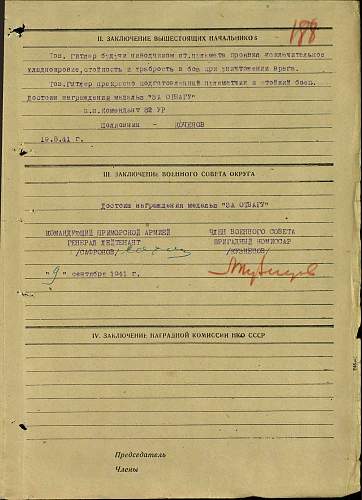 188
II. ЗАКЛЮЧЕНИЕ ВЫШЕСТОЯЩИХ НАЧАЛЬНИКОВ
Тов. Гитлер будучи наводчиком ст.пулемета проявил исключительное
хладнокровие, стойкость и храбрость в бою при уничтожении врага.
Тов.Гитлер прекрасно подготовленный пулеметчик и стойкий боец.
Достоин награждения медалью "ЗА ОТВАГУ"
п.п.Комендант 82 УР
Полковник КОЧЕНОВ
19.8.41 г.
III. ЗАКЛЮЧЕНИЕ ВОЕННОГО СОВЕТА ОКРУГА
Достоин награждения медалью "ЗА ОТВАГУ"
КОМАНДУЮЩИЙ ПРИМОРСКОЙ АРМИЕЙ ЧЛЕН ВОЕННОГО СОВЕТА
ГЕНЕРАЛ ЛЕЙТЕНАНТ БРИГАДНЫЙ КОМИССАР
/САФРОНОВ/ /КУЗНЕЦОВ/
"9" сентября 1941 г.
IV. ЗАКЛЮЧЕНИЕ НАГРАДНОЙ КОМИССИИ НКО СССР
Председатель
Члены